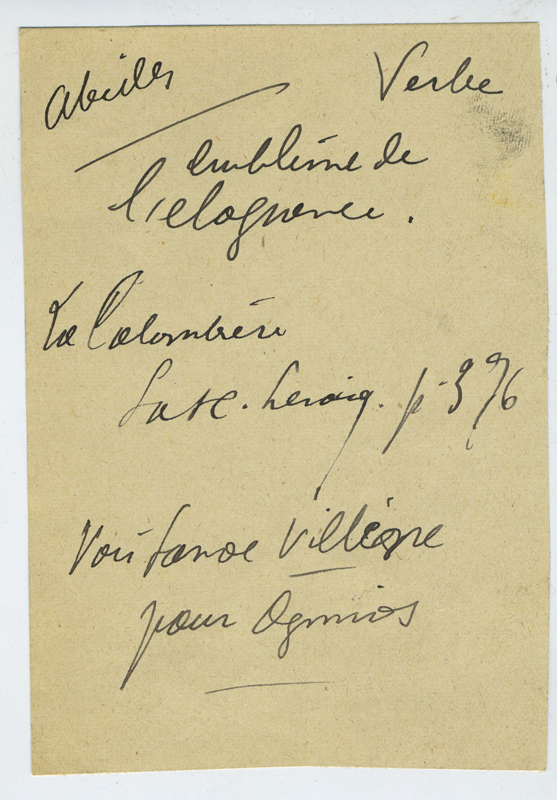 Abeilles
Verbe
emblème de
l'eloquence.
La Colombière
Sc. heroiq. p. 376
Voir Villègne
pour Ogmios